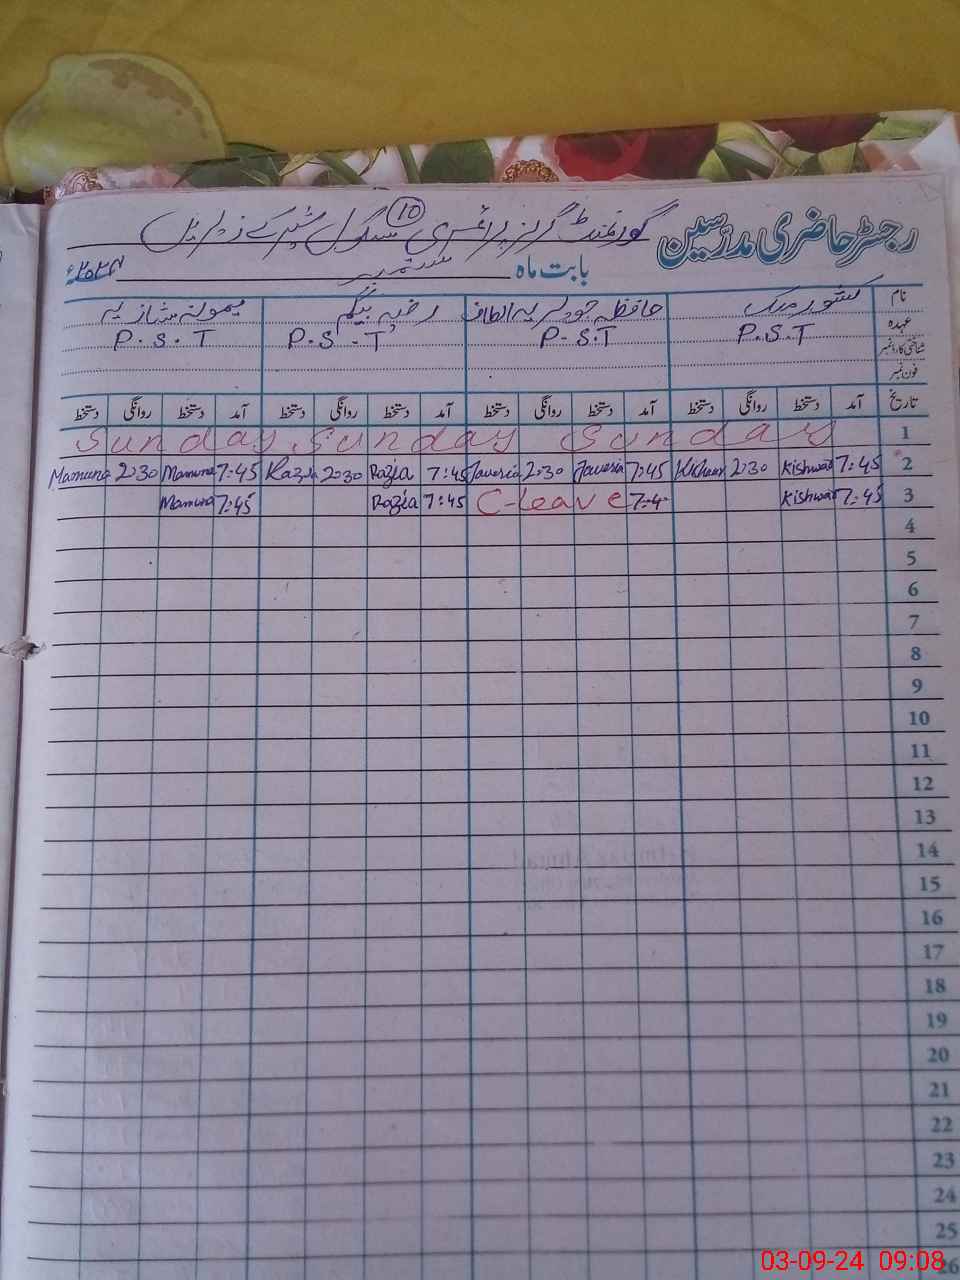 رجسٹر حاضری مدرسین گورنمنٹ گرلز پرائمری سکول
10
بابت ماہ ستمبر ۲۰۲۴ء
نام کشور حافظہ جویریہ الطاف رضیہ بیگم میمونہ شازیہ
عہدہ P.S.T P.S.T P.S.T P.S.T
شناختی کارڈ نمبر
فون نمبر
تاریخ آمد دستخط روانگی دستخط آمد دستخط روانگی دستخط آمد دستخط روانگی دستخط آمد دستخط روانگی دستخط
Sunday Sunday Sunday 1
Mamuna 2:30 Mamuna 7:45 Razia 2:30 Razia 7:45 Javeria 2:30 Javeria 7:45 Kishwar 2:30 Kishwar 7:45 2
Mamuna 7:45 Razia 7:45 C-leave 7:4 Kishwar 7:45 3
4
5
6
7
8
9
10
11
12
13
14
15
16
17
18
19
20
21
22
23
24
25
26
03-09-24 09:08